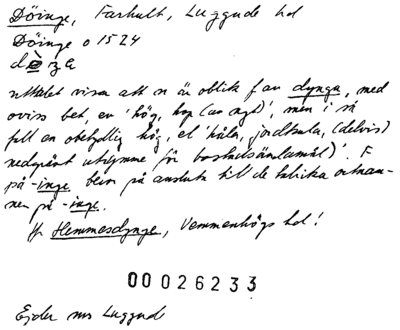 Döinge, Farhult, Luggude hd
Döinge o 1524
uttalet visar att n är oblik f av dynga, med
oviss bet, en 'hög, hop (av ngt)', men i så
fall en obetydlig hög, el 'håla, jordkula, (delvis)
nedgrävt utrymme för bostadsändamål)'. F
på -inge beror på anslutn till de talrika ortnam-
nen på -inge.
Jfr Hemmesdynge, Vemmenhögs hd!
00026233
Luggude